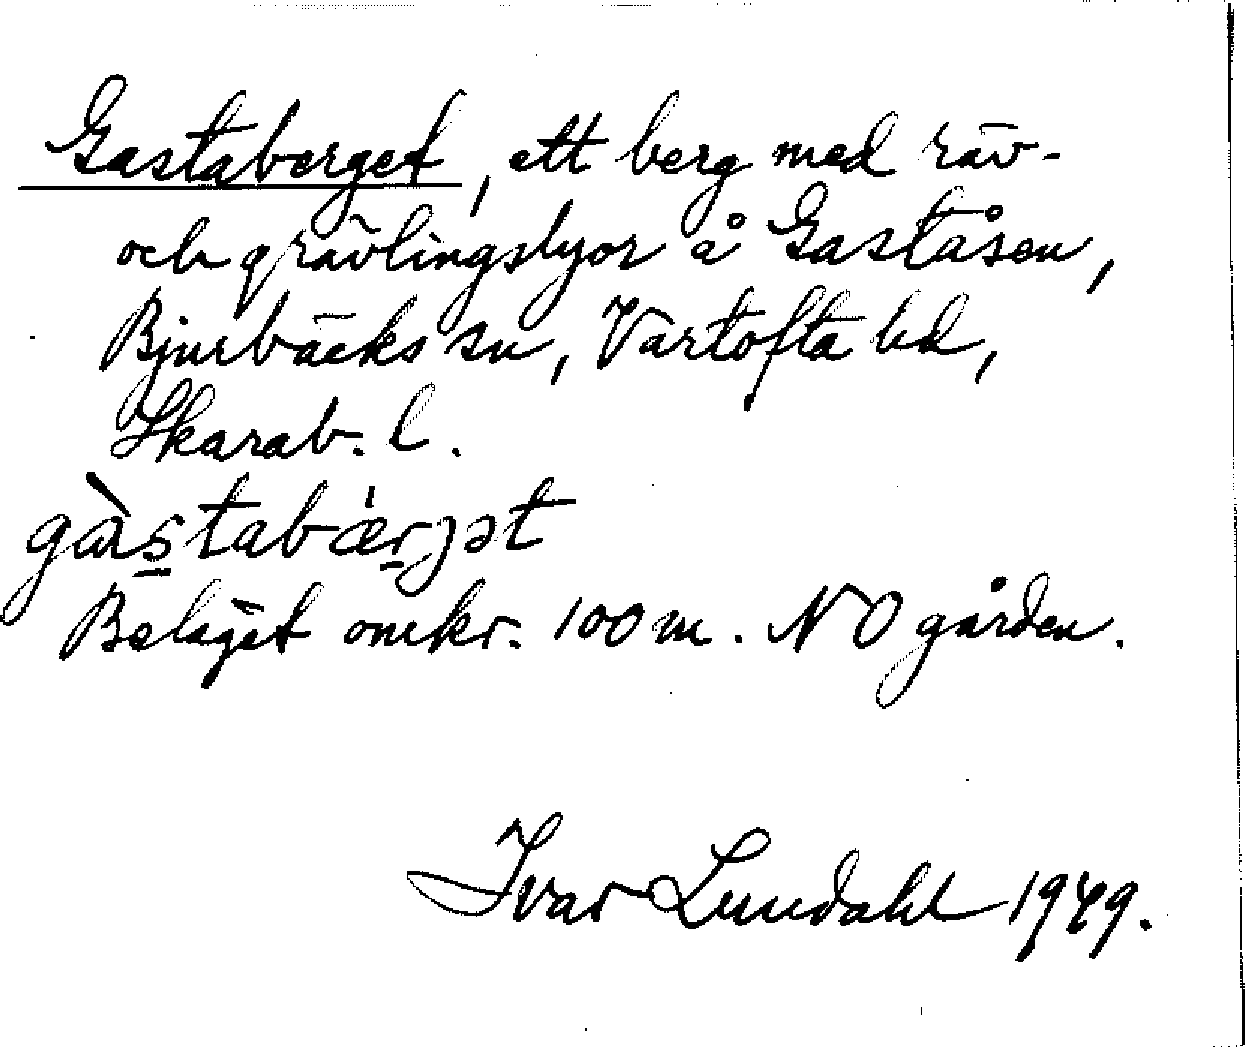 Gastaberget, ett berg med räv-
och grävlingslyor å Gaståsen,
Bjurbäcks sn, Vartofta hd,
Skarab. l.
gàs̠tabæ̍r̠jət
Beläget omkr. 100 m. NO gården.
Ivar Lundahl 1949.